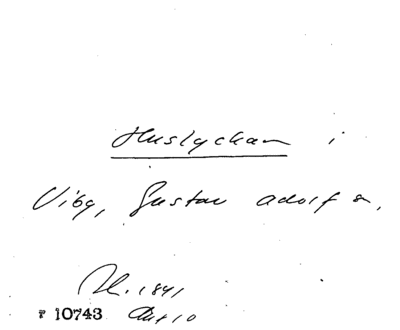 Huslyckan i
Viby, Gustav Adolf s,
1841
F 10743 Akt 10